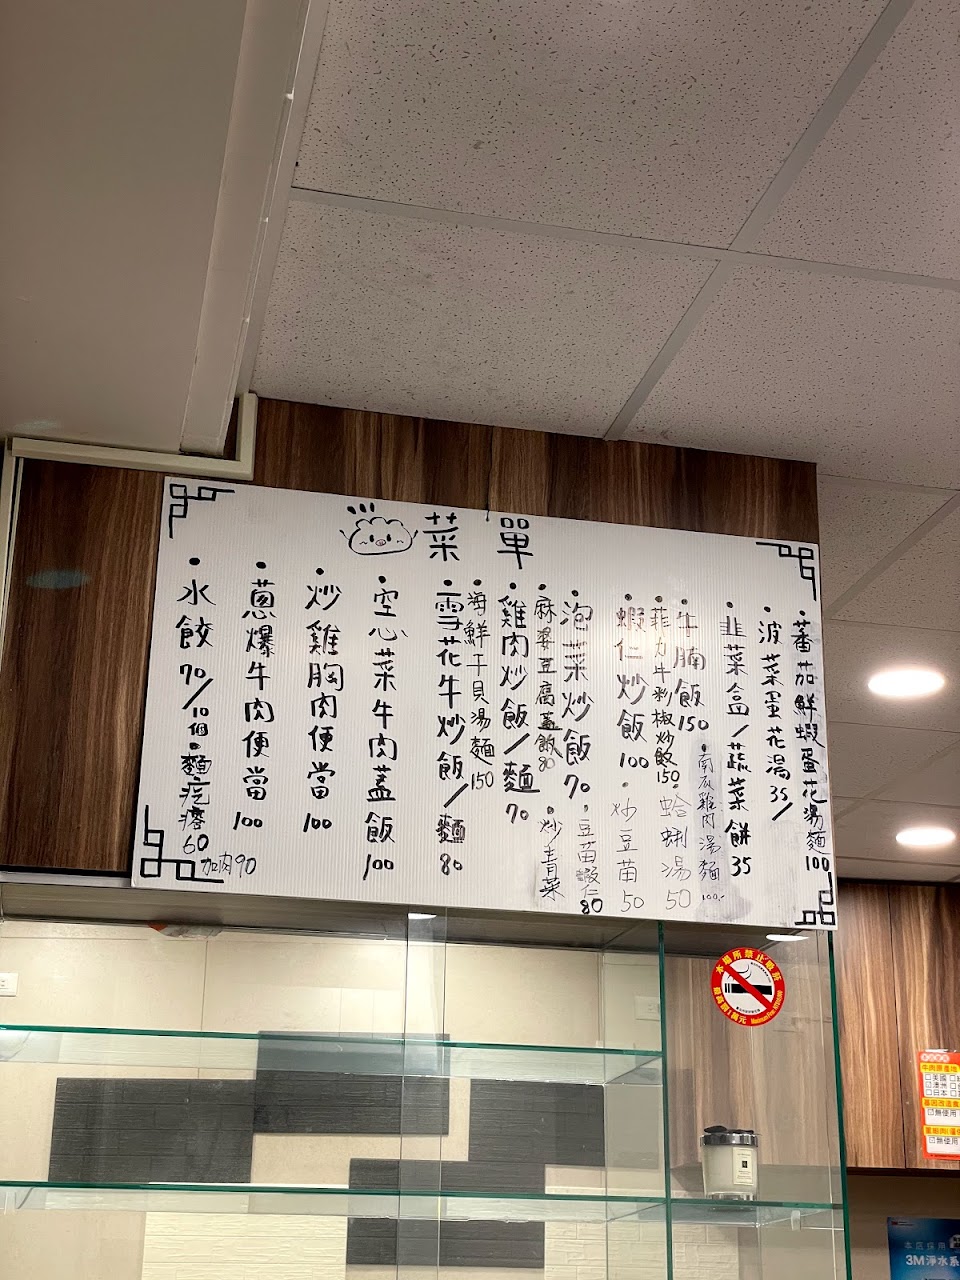 菜單
•蕃茄鮮蝦蛋花湯麵100
•波菜蛋花湯35/
•韭菜盒/蔬菜餅35
•牛腩飯150
•南瓜雞肉湯麵100.-
•菲力牛粉椒炒飯150
•蛤蜊湯50
•蝦仁炒飯100
•炒豆苗50
泡菜炒飯70
•豆苗蝦仁80
•麻婆豆腐蓋飯80
•炒青菜
•雞肉炒飯/麵70
•海鮮干貝湯麵150
•雪花牛炒飯/麵80
•空心菜牛肉蓋飯100
•炒雞胸肉便當100
•蔥爆牛肉便當100
•水餃70/10個
•麵疙瘩60
加肉90
本場所禁止吸菸
3M淨水系